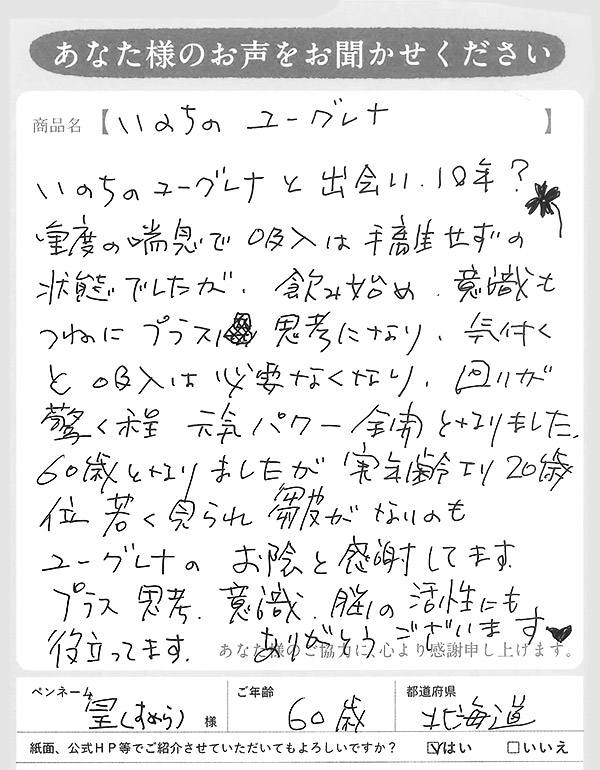 あなた様のお声をお聞かせください
商品名【いのちの ユーグレナ】
いのちのユーグレナと出会い、10年?
重度の喘息で吸入は手離せずの
状態でしたが、飲み始め、意識も
つねにプラス思考になり、気付く
と吸入は必要なくなり、回りが
驚く程 元気パワー全開となりました。
60歳となりましたが実年齢より20歳
位若く見られ皺がないのも
ユーグレナのお陰と感謝してます。
プラス思考、意識、脳の活性にも
役立ってます。ありがとうございます♥
あなた様のご協力に、心より感謝申し上げます。
ペンネーム 皇(すめら) 様 ご年齢 60歳 都道府県 北海道
紙面、公式HP等でご紹介させていただいてもよろしいですか? ☑はい □いいえ